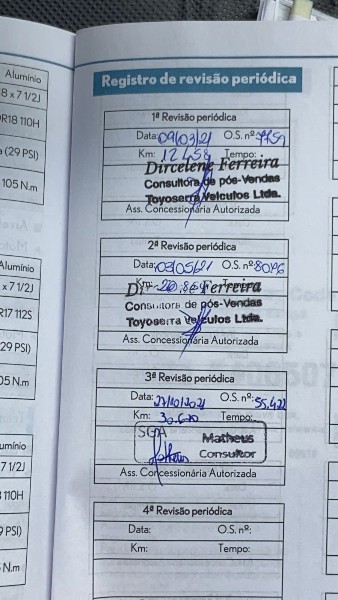 Alumínio
8 x 7 1/2J
R18 110H
(29 PSI)
105 N.m
Alumínio
x 7 1/2J
R17 112S
29 PSI)
05 N.m
umínio
7 1/2J
110H
PSI)
N.m
Registro de revisão periódica
1ª Revisão periódica
Data: 09/03/21 O.S. nº:
Km: 12 458 Tempo:
Dircelene Ferreira
Consultora de pós-Vendas
Toyoserra Veículos Ltda.
Ass. Concessionária Autorizada
2ª Revisão periódica
Data: 03/05/21 O.S. nº:
Km: Tempo:
Ferreira
Consultora de pós-Vendas
Toyoserra Veículos Ltda.
Ass. Concessionária Autorizada
3ª Revisão periódica
Data: 27/10/2021 O.S. nº: 55,422
Km: 30.670 Tempo:
SGA Matheus
Matheus Consultor
Ass. Concessionária Autorizada
4ª Revisão periódica
Data: O.S. nº:
Km: Tempo: